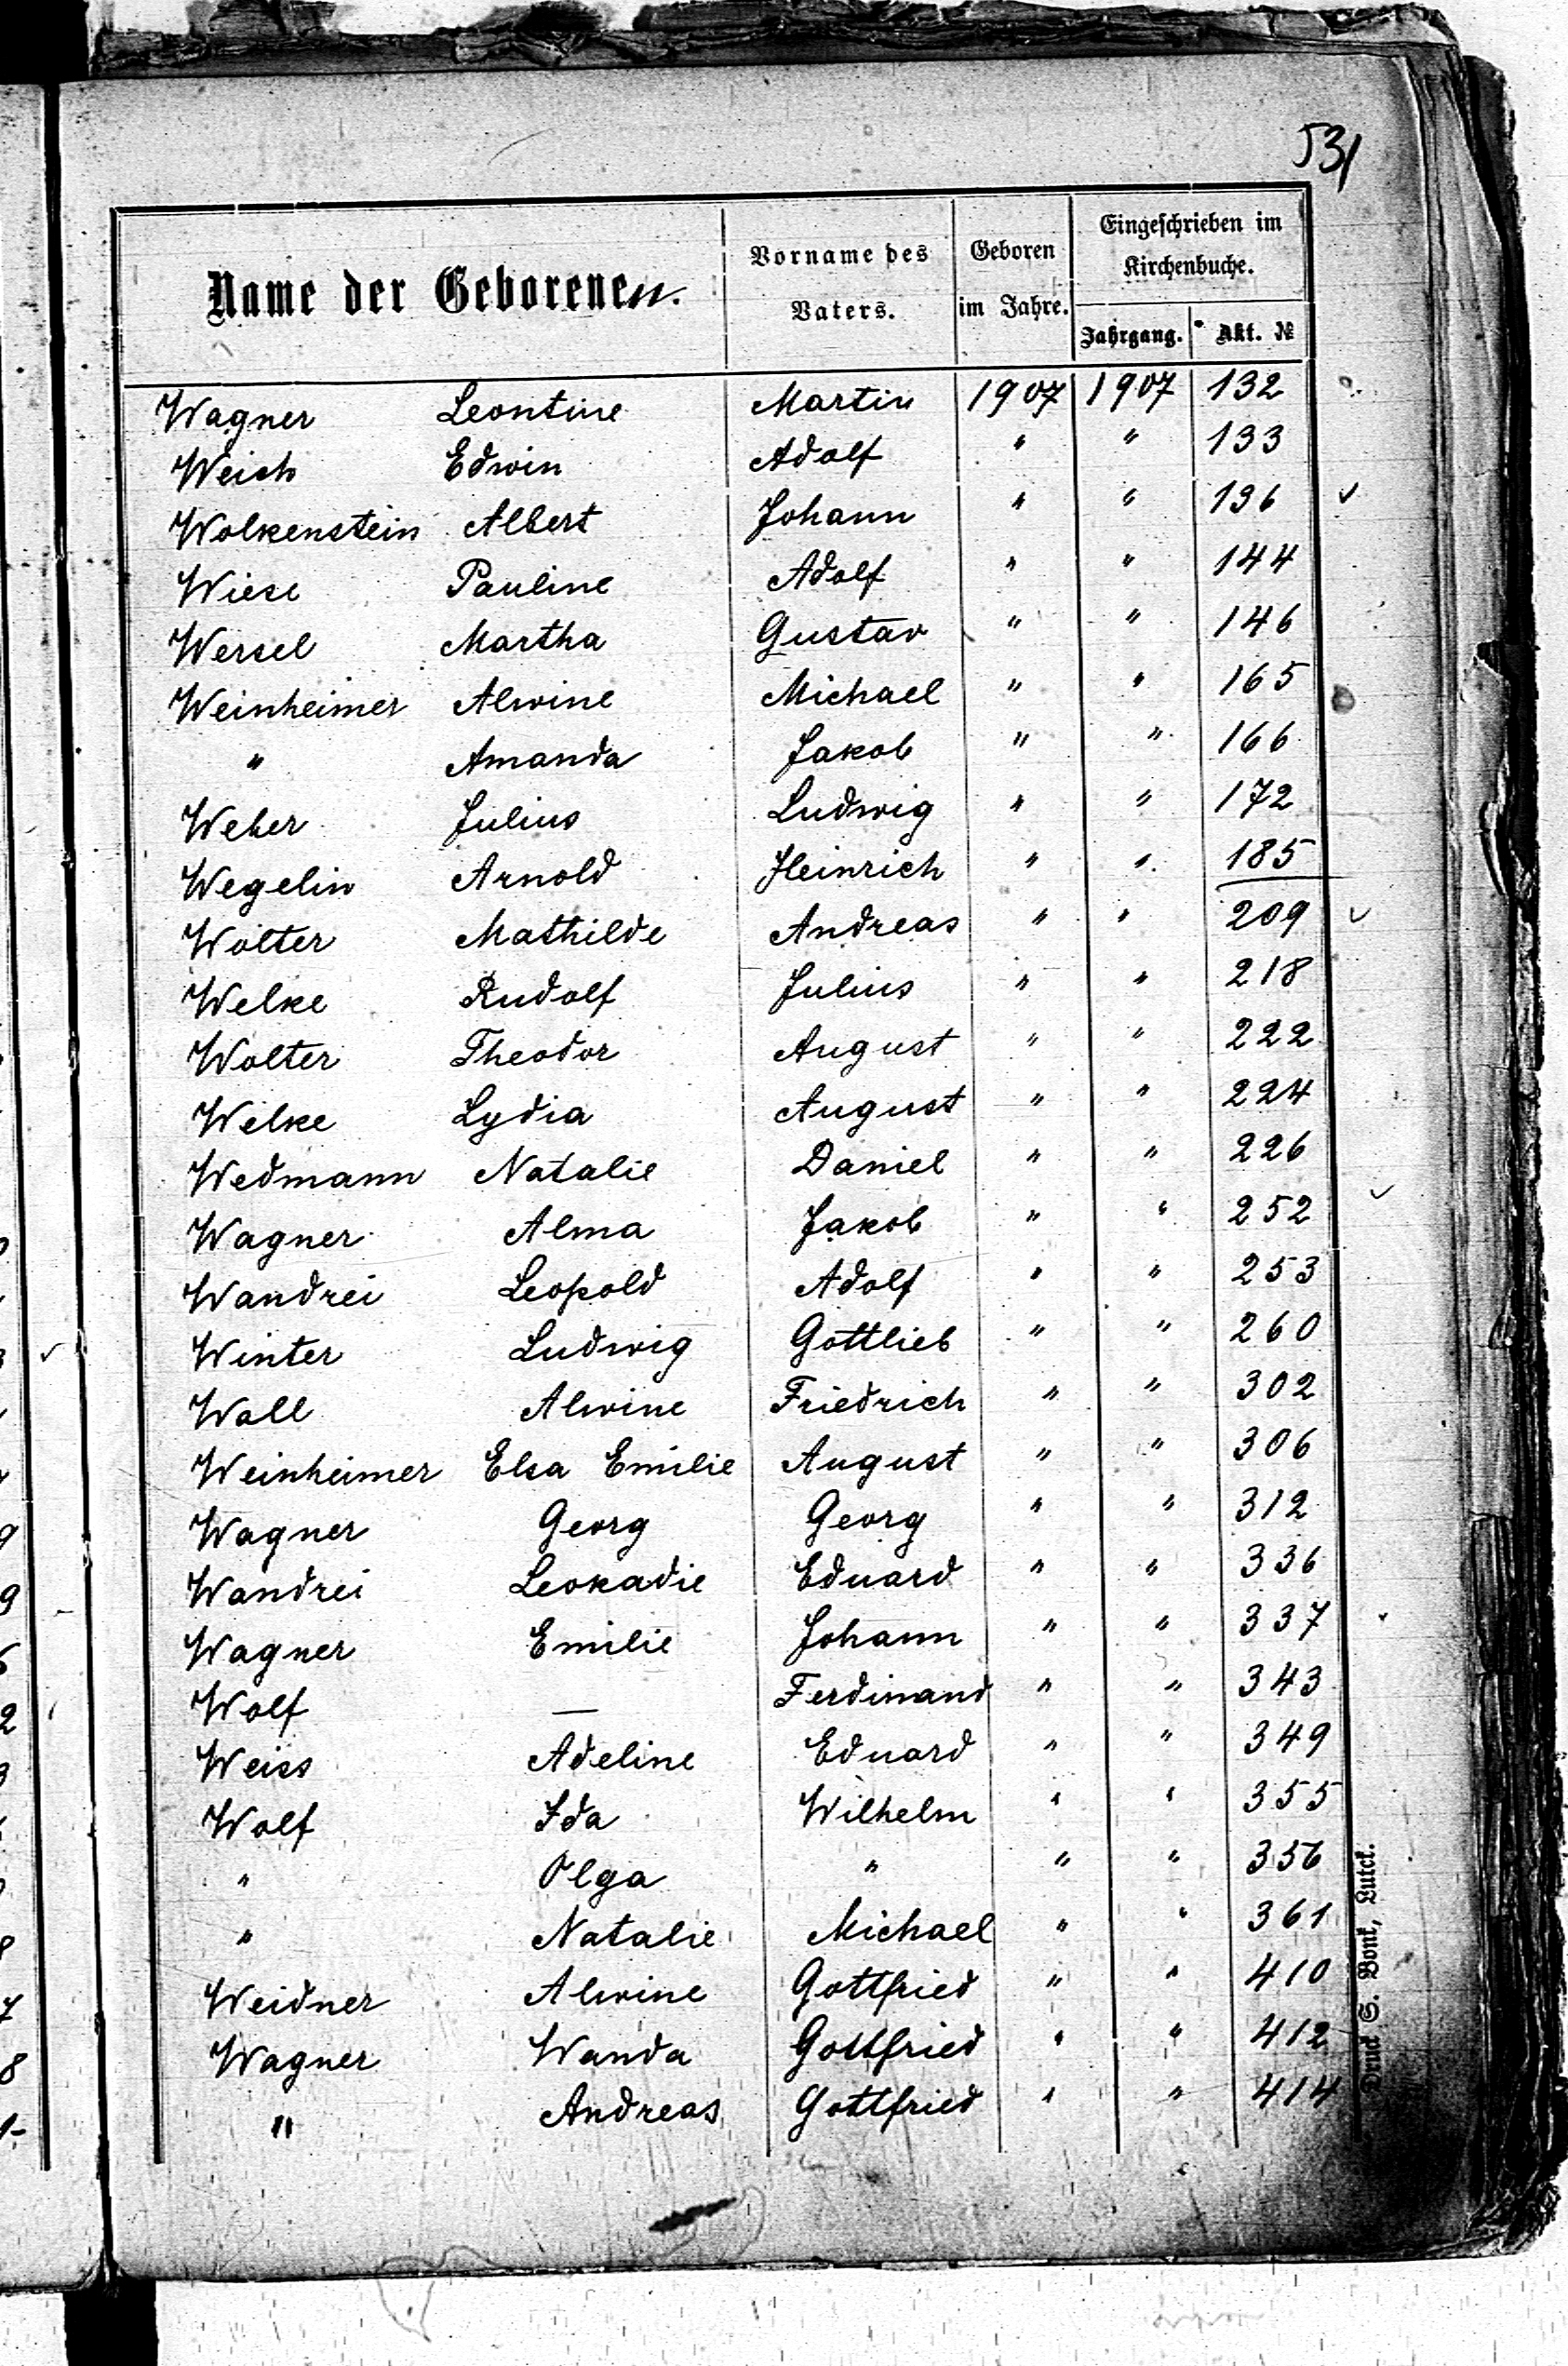 531
Name der Geborenen.
Vorname des Vaters.
Geboren im Jahre.
Eingeschrieben im Kirchenbuche.
Jahrgang. Akt. №
Wagner Leontine Martin 1907 1907 132
Weich Edwin Adolf " " 133
Wolkenstein Albert Johann " " 136
Wiese Pauline Adolf " " 144
Wersel Martha Gustav " " 146
Weinheimer Alwine Michael " " 165
" Amanda Jakob " " 166
Weber Julius Ludwig " " 172
Wegelin Arnold Heinrich " " 185
Wolter Mathilde Andreas " " 209
Welke Rudolf Julius " " 218
Wolter Theodor August " " 222
Welke Lydia August " " 224
Wedmann Natalie Daniel " " 226
Wagner Alma Jakob " " 252
Wandrei Leopold Adolf " " 253
Winter Ludwig Gottlieb " " 260
Wall Alwine Friedrich " " 302
Weinheimer Elsa Emilie August " " 306
Wagner Georg Georg " " 312
Wandrei Leokadie Eduard " " 336
Wagner Emilie Johann " " 337
Wolf — Ferdinand " " 343
Weiss Adeline Eduard " " 349
Wolf Ida Wilhelm " " 355
" Olga " " " 356
" Natalie Michael " " 361
Weidner Alwine Gottfried " " 410
Wagner Wanda Gottfried " " 412
" Andreas Gottfried " " 414
Druck S. Bonk, Lutck.